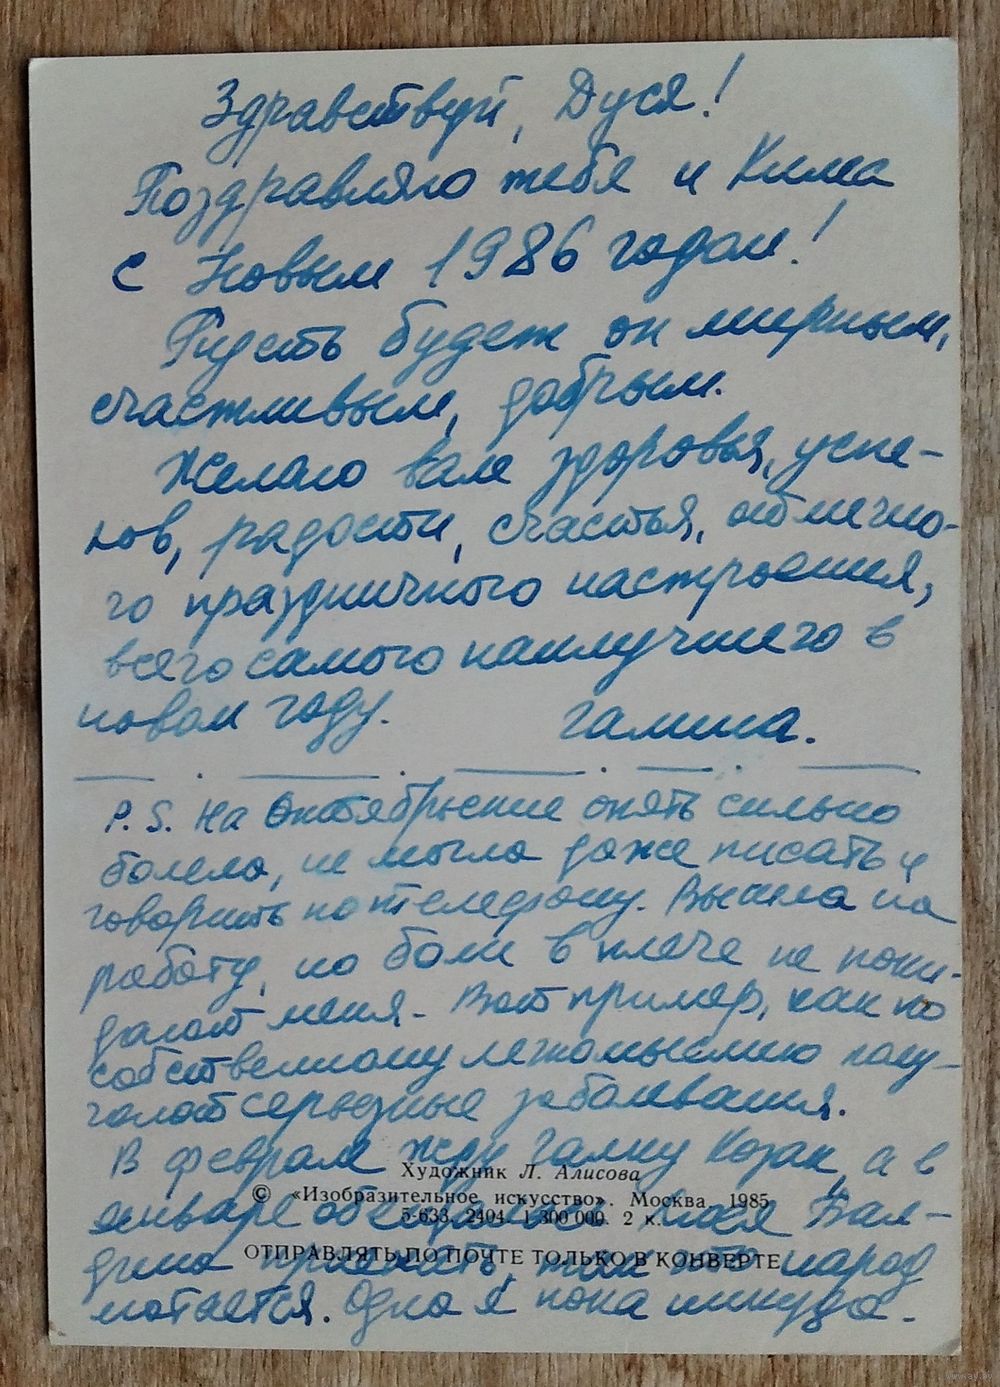 Здравствуй, Дуся!
Поздравляю тебя и Кима
с Новым 1986 годом!
Пусть будет он мирным,
счастливым, добрым.
Желаю вам здоровья, успе-
хов, радости, счастья, отлично-
го праздничного настроения,
всего самого наилучшего в
новом году. Галина.
P.S. На Октябрьские опять сильно
болела, не могла даже писать и
говорить по телефону. Вышла на
работу, но боли в плече не поки-
дают меня. Вот пример, как по
собственному легкомыслию полу-
чают серьезные заболевания.
В феврале жду Галину Козак, а в
Художник Л. Алисова
© «Изобразительное искусство». Москва. 1985
январе моя Гал-
5-633. 2404. 1 300 000. 2 к.
ОТПРАВЛЯТЬ ПО ПОЧТЕ ТОЛЬКО В КОНВЕРТЕ
приехать так что народ
мотается. Одна я пока никуда.